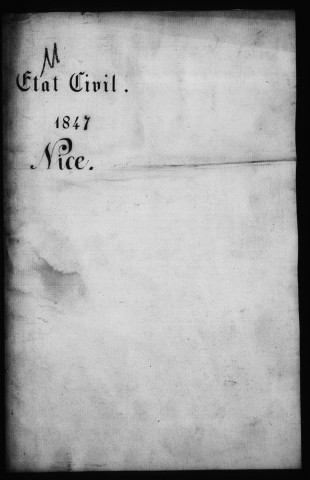 M
Etat Civil.
1847
Nice.